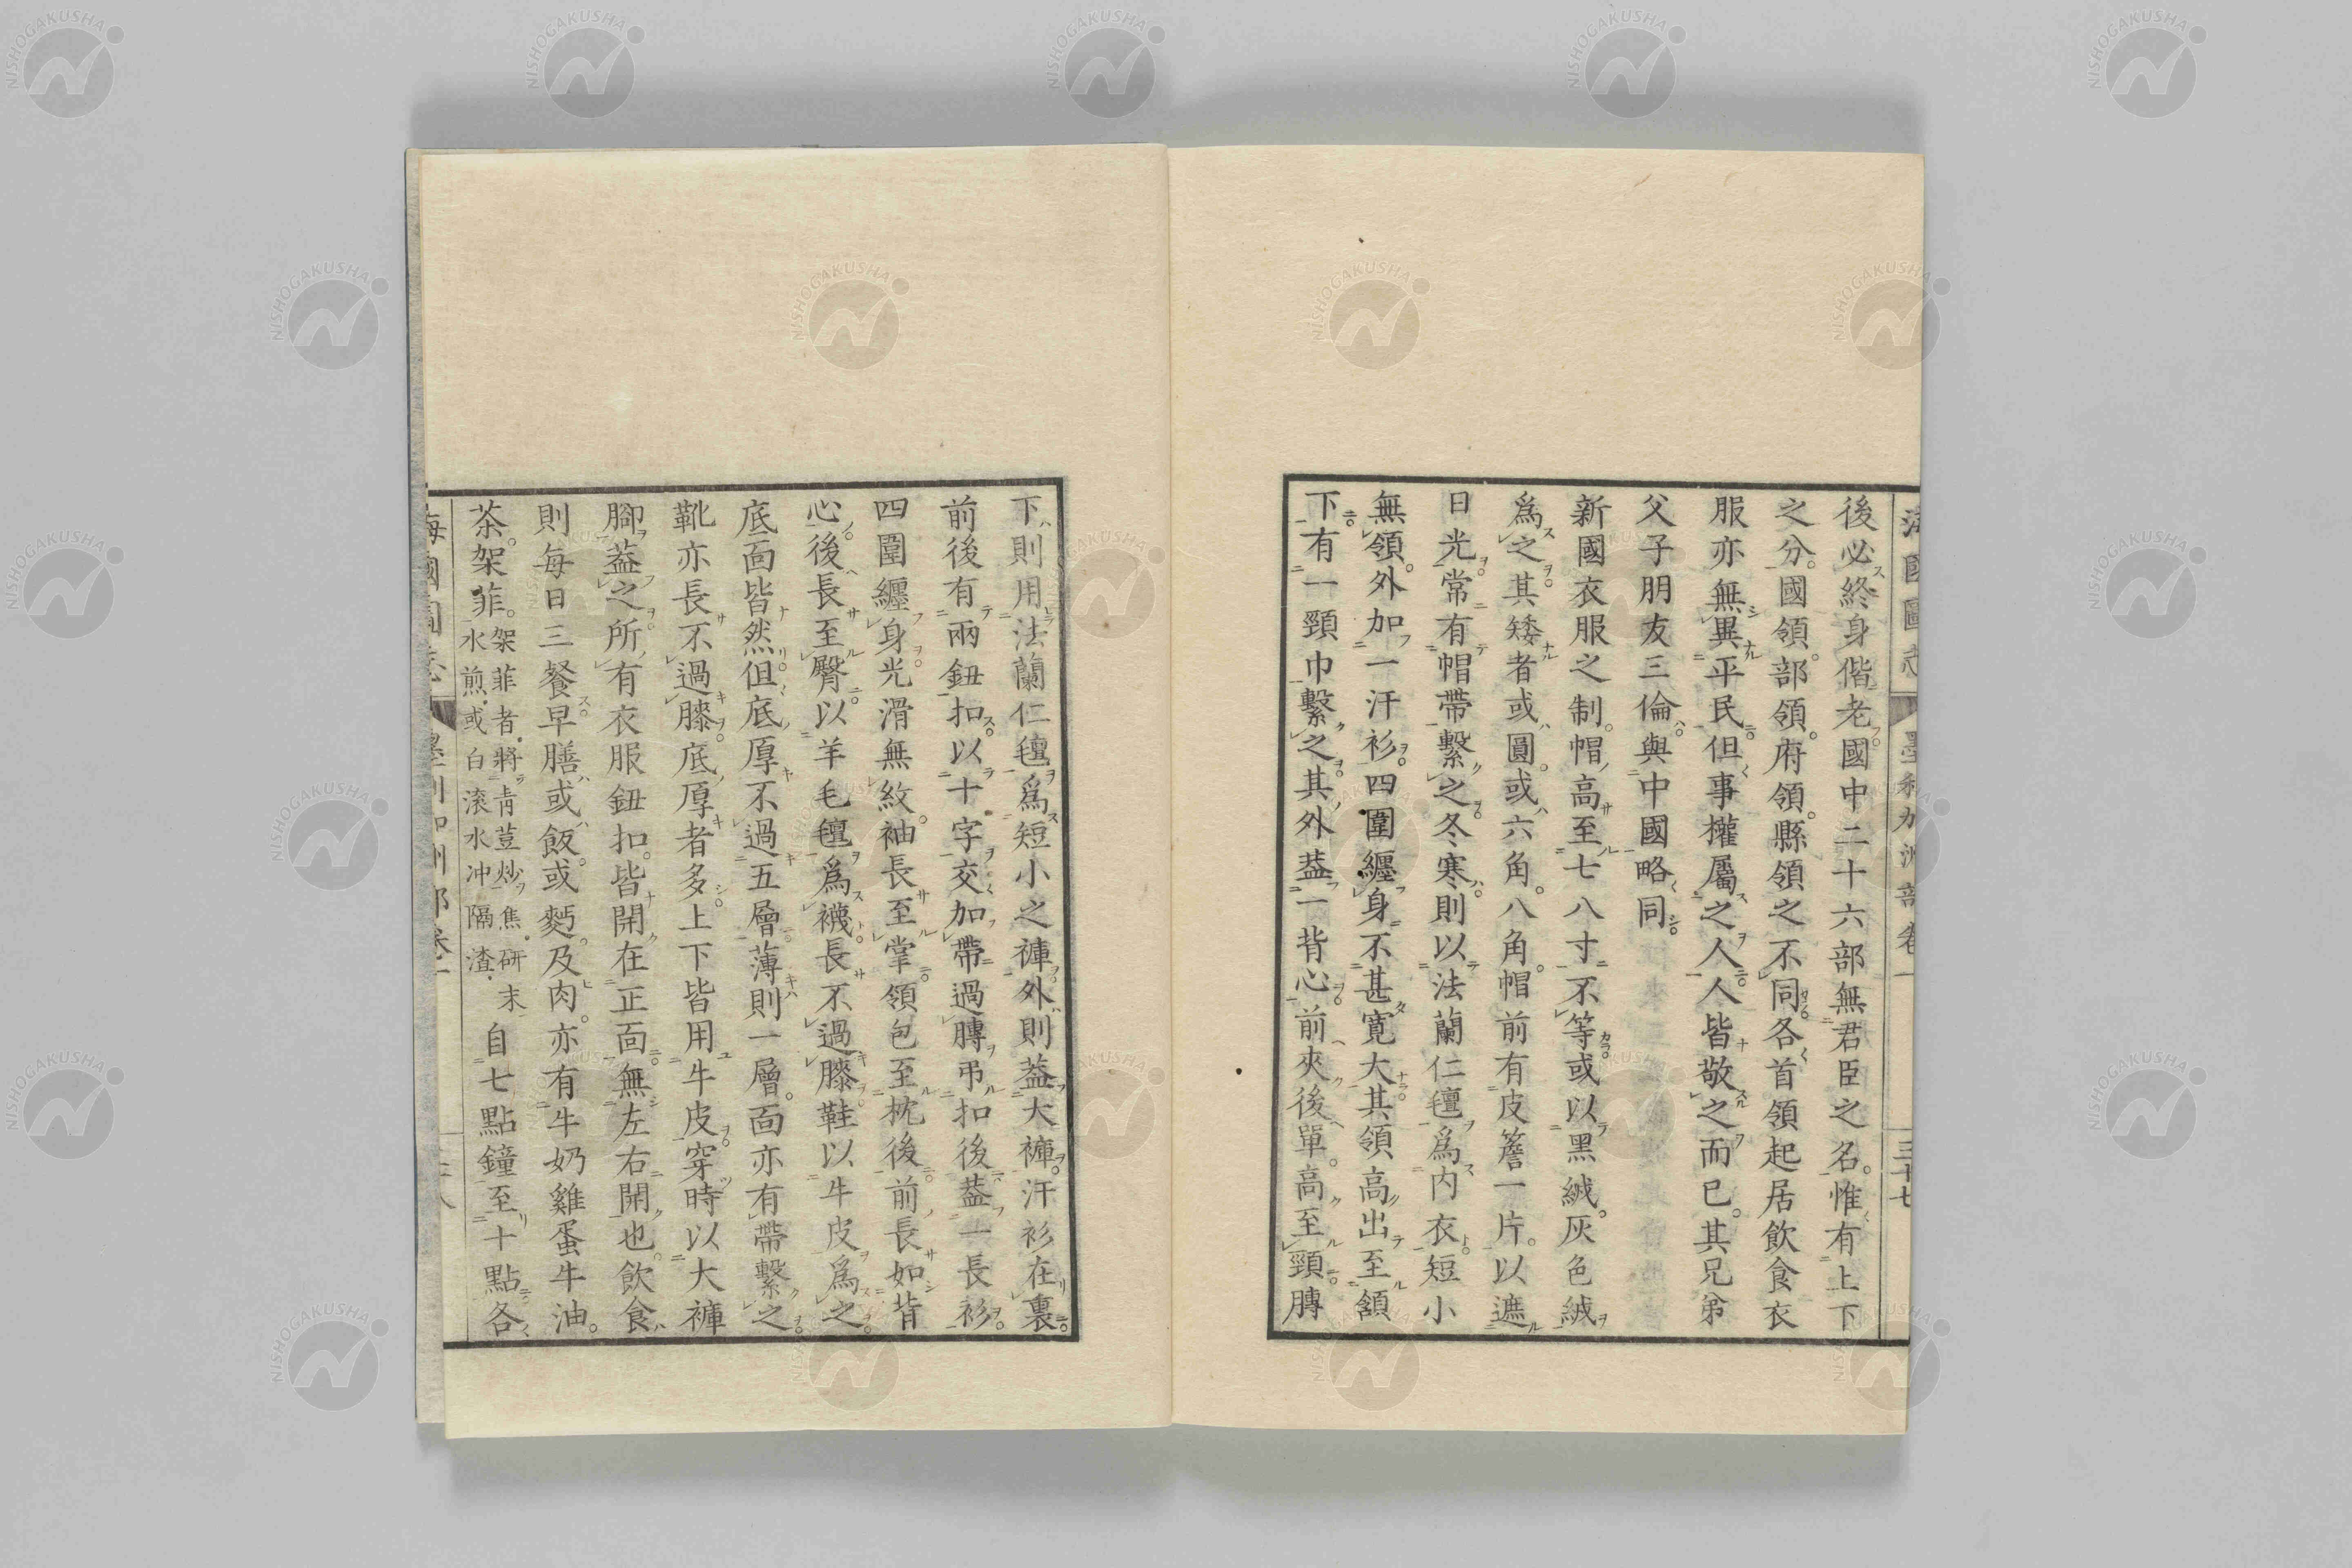 海國圖志 墨利加洲部卷一 三十七
後必終身偕老。國中二十六部無君臣之名。惟有上下
之分。國領。部領。府領。縣領之不同。各首領起居飲食衣
服亦無異平民。但事權屬之人。人皆敬之而已。其兄弟
父子朋友三倫。與中國略同。
新國衣服之制。帽高至七八寸不等。或以黑絨。灰色絨
爲之。其矮者或圓。或六角。八角。帽前有皮簷一片。以遮
日光。常有帽帶繫之。冬寒。則以法蘭仁氊爲内衣。短小
無領。外加一汗衫。四圍纏身。不甚寬大。其領高出至頷
下。有一頸巾繫之。其外葢一背心。前夾後單。高至頸膊
下則用法蘭仁氊爲短小之褲。外則葢大褲。汗衫在裏。
前後有兩鈕扣。以十字交加帶過膊弔扣。後葢一長衫。
四圍纏身。光滑無紋。袖長至掌。領包至枕後。前長如背
心。後長至臀。以羊毛氊爲襪。長不過膝。鞋以牛皮爲之。
底面皆然。但底厚不過五層。薄則一層。面亦有帶繫之。
靴亦長不過膝。底厚者多。上下皆用牛皮。穿時以大褲
腳葢之。所有衣服鈕扣。皆開在正面。無左右開也。飲食
則每日三餐。早膳或飯。或麪。及肉。亦有牛奶雞蛋牛油。
茶。架菲。架菲者。將青荳炒焦。研末水煎。或白滾水冲隔渣。自七點鐘至十點各
海國圖志 墨利加洲部卷一